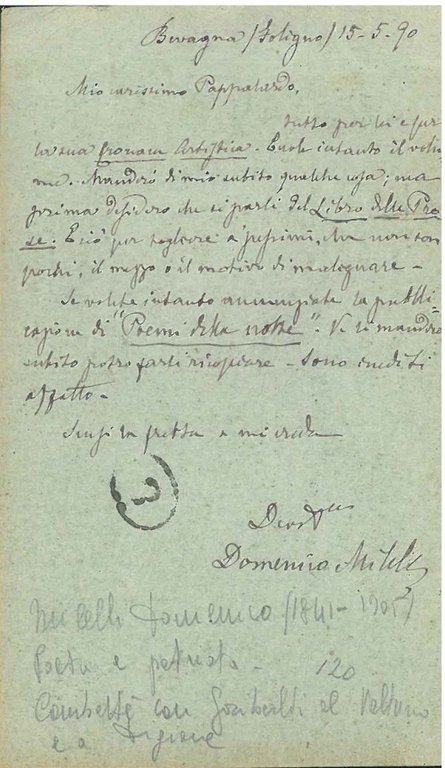 Bevagna (Foligno) 15-5-90
Mio carissimo Pappalardo,
tutto per lei e per
la sua Cronaca Artistica. Eccole intanto il volu
me. Manderò di mio subito qualche cosa; ma
prima desidero che si parli del Libro delle Pro
se. E ciò per togliere a pessimi, che non son
pochi, il mezzo o il motivo di malignare -
Se volete intanto annunziate la pubbli-
cazione di "Poemi della notte". Ve li manderò
subito potrò farli ricopiare - Sono inediti
affatto -
Scusi la fretta e mi creda
3
Domenico Milelli
Milelli Domenico (1841-1905)
Poeta e patriota - 120
Combatté con Garibaldi al Volturno
e a Digione